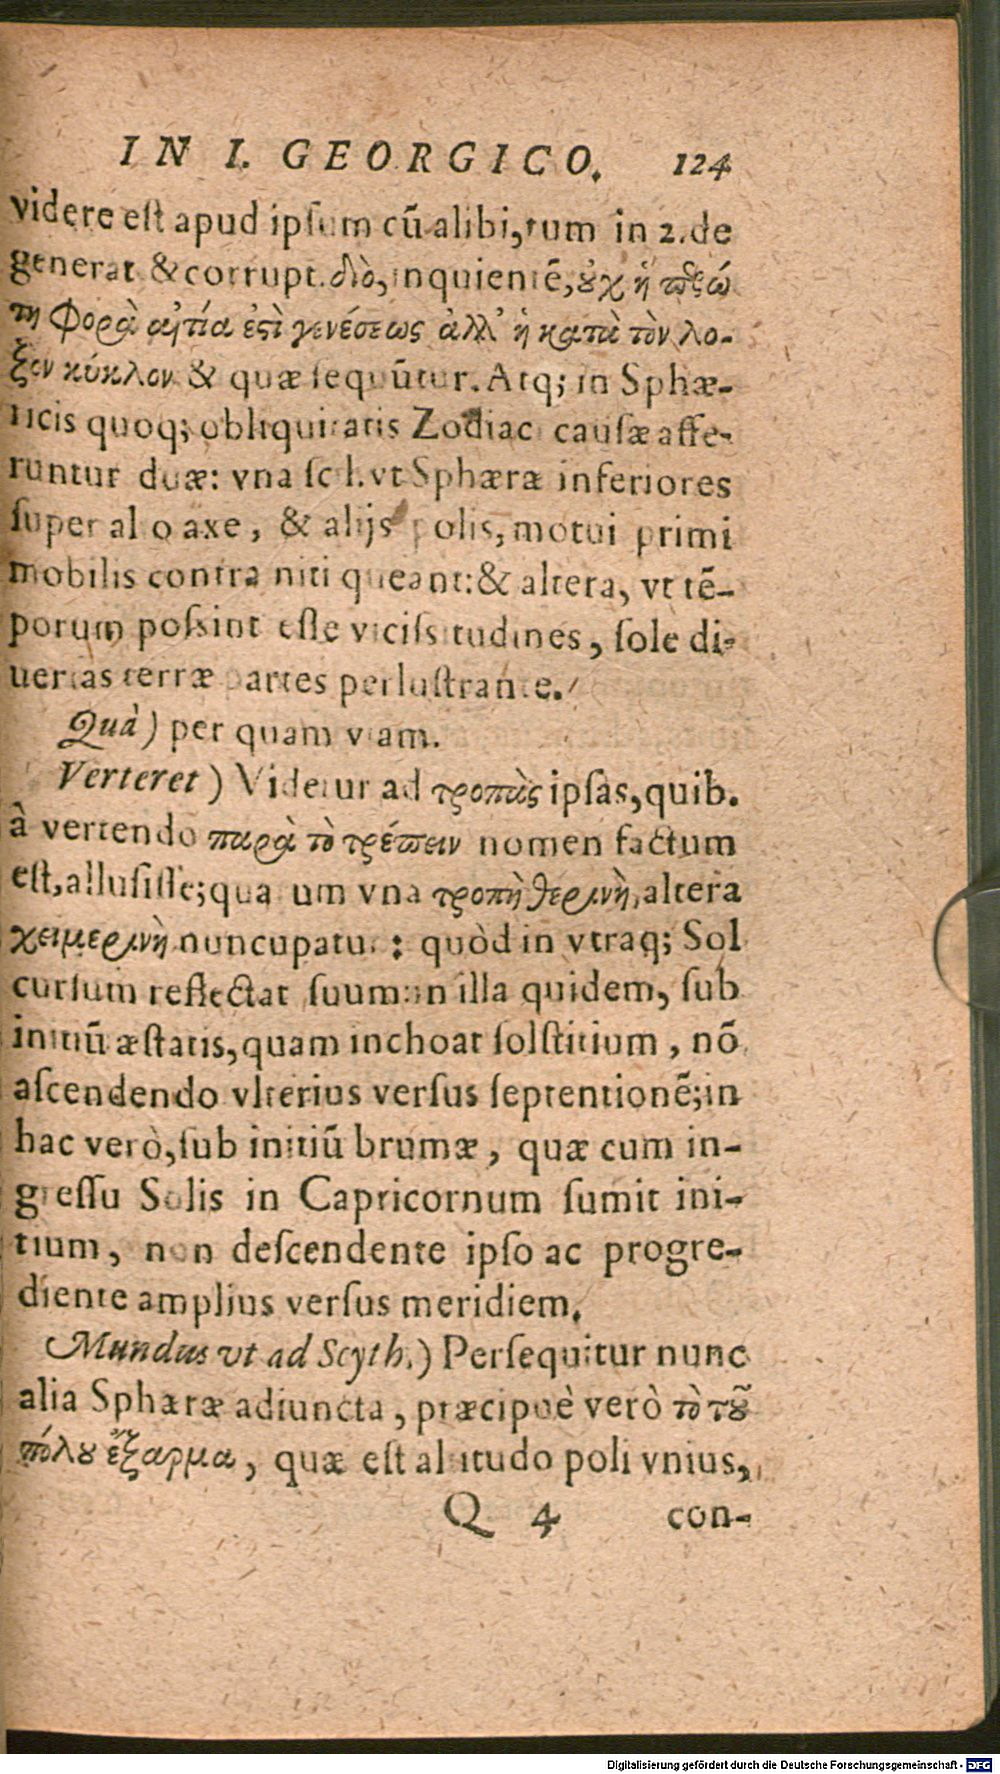 IN I. GEORGICO. 124
videre est apud ipsum cū alibi, tum in 2. de
generat. & corrupt. διὸ, inquientē, οὐχ ἡ πρώ
τη φορὰ αἰτία ἐστὶ γενέσεως ἀλλ' ἡ κατὰ τὸν λο-
ξὸν κύκλον & quæ sequūtur. Atq; in Sphæ-
ricis quoq; obliquitatis Zodiaci causæ affe-
runtur duæ: vna scil. vt Sphæræ inferiores
super alio axe, & alijs polis, motui primi
mobilis contra niti queant: & altera, vt tē-
porum possint esse vicissitudines, sole di-
uersas terræ partes perlustrante.
Quà) per quam viam.
Verteret) Videtur ad τροπὰς ipsas, quib.
à vertendo παρὰ τὸ τρέπειν nomen factum
est, allusisse; quarum vna τροπὴ θερινὴ, altera
χειμερινὴ nuncupatur: quòd in vtraq; Sol
cursum reflectat suum: in illa quidem, sub
initiū æstatis, quam inchoat solstitium, nō
ascendendo vlterius versus septentionē; in
hac verò, sub initiū brumæ, quæ cum in-
gressu Solis in Capricornum sumit ini-
tium, non descendente ipso ac progre-
diente amplius versus meridiem.
Mundus vt ad Scyth.) Persequitur nunc
alia Sphæræ adiuncta, præcipuè verò τὸ τοῦ
πόλου ἔξαρμα, quæ est altitudo poli vnius,
Q 4 con-
Digitalisierung gefördert durch die Deutsche Forschungsgemeinschaft - DFG